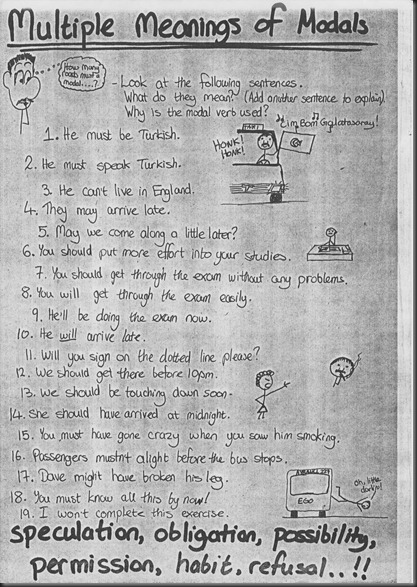 Multiple Meanings of Modals
How many
roads must a
modal....?
- Look at the following sentences.
What do they mean? (Add another sentence to explain).
Why is the modal verb used?
Cim Bom Galatasaray!
TAXI
HONK!
HONK!
1. He must be Turkish.
2. He must speak Turkish.
3. He can't live in England.
4. They may arrive late.
5. May we come along a little later?
6. You should put more effort into your studies.
7. You should get through the exam without any problems.
8. You will get through the exam easily.
9. He'll be doing the exam now.
10. He will arrive late.
11. Will you sign on the dotted line please?
12. We should get there before 10pm.
13. We should be touching down soon.
14. She should have arrived at midnight.
15. You must have gone crazy when you saw him smoking.
16. Passengers mustn't alight before the bus stops.
17. Dave might have broken his leg.
18. You must know all this by now!
19. I won't complete this exercise.
EGO
speculation, obligation, possibility,
permission, habit, refusal..!!